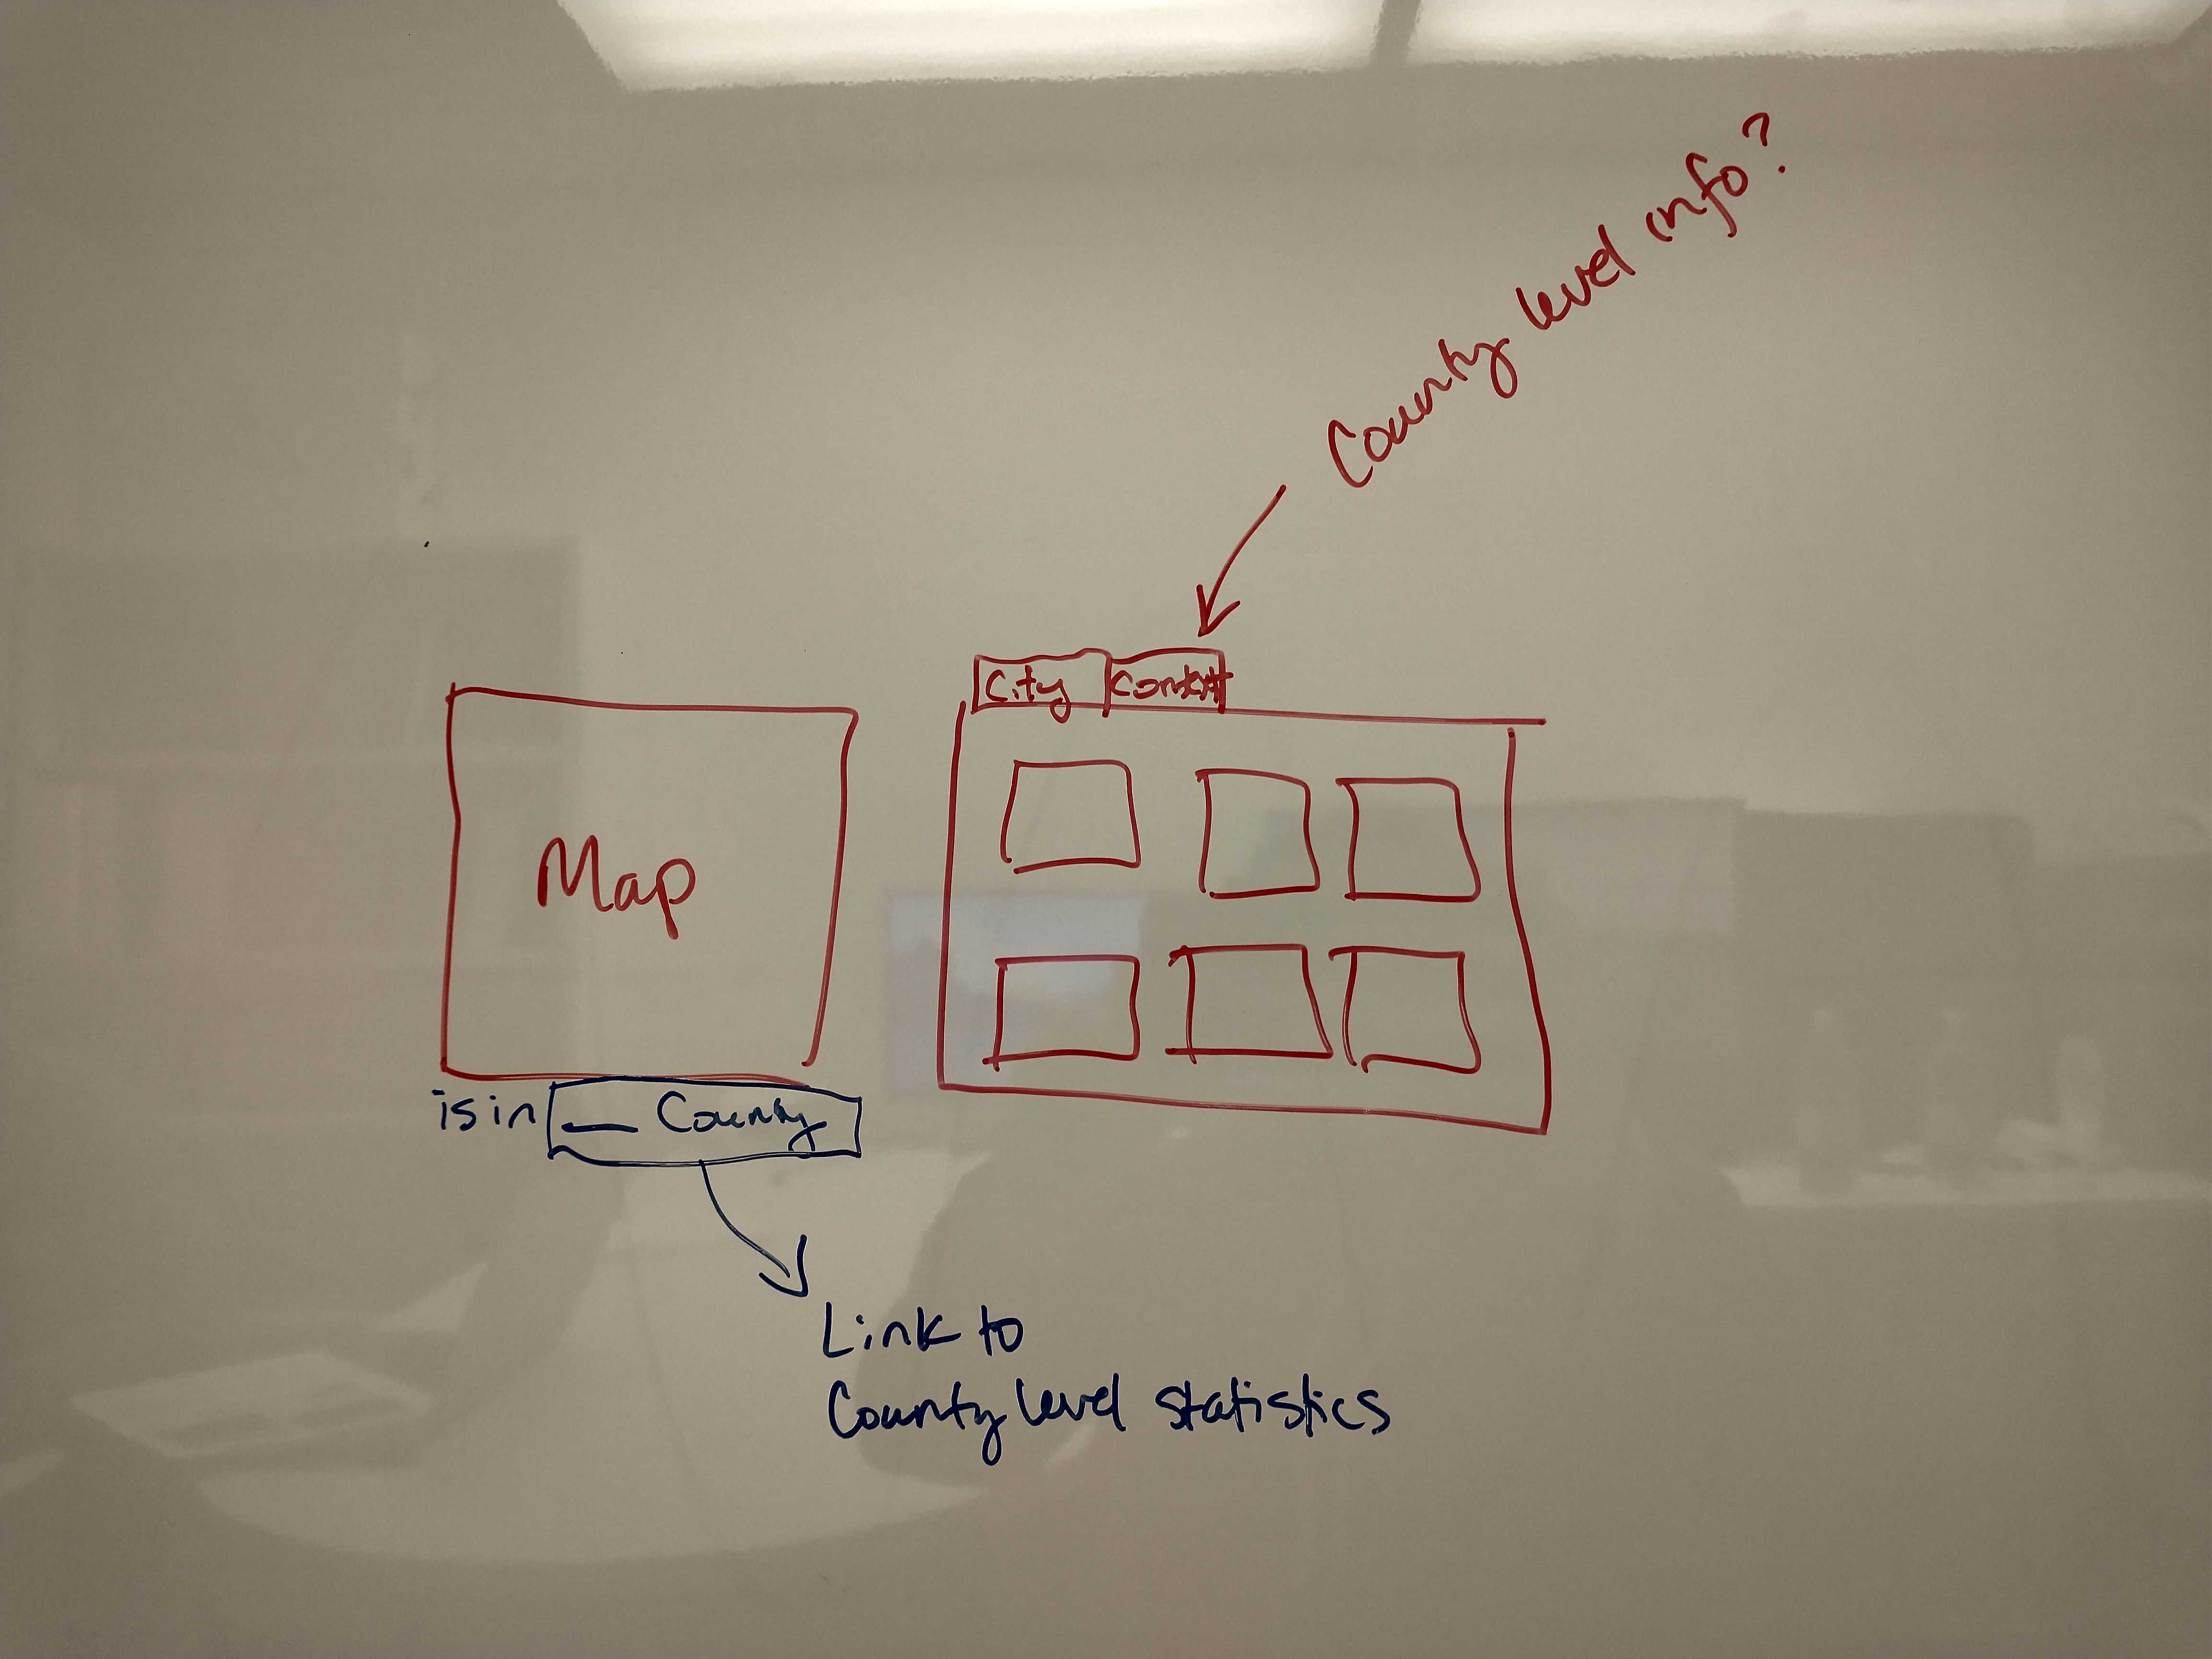 County level info?
City
Context
Map
is in — County
Link to
County level statistics